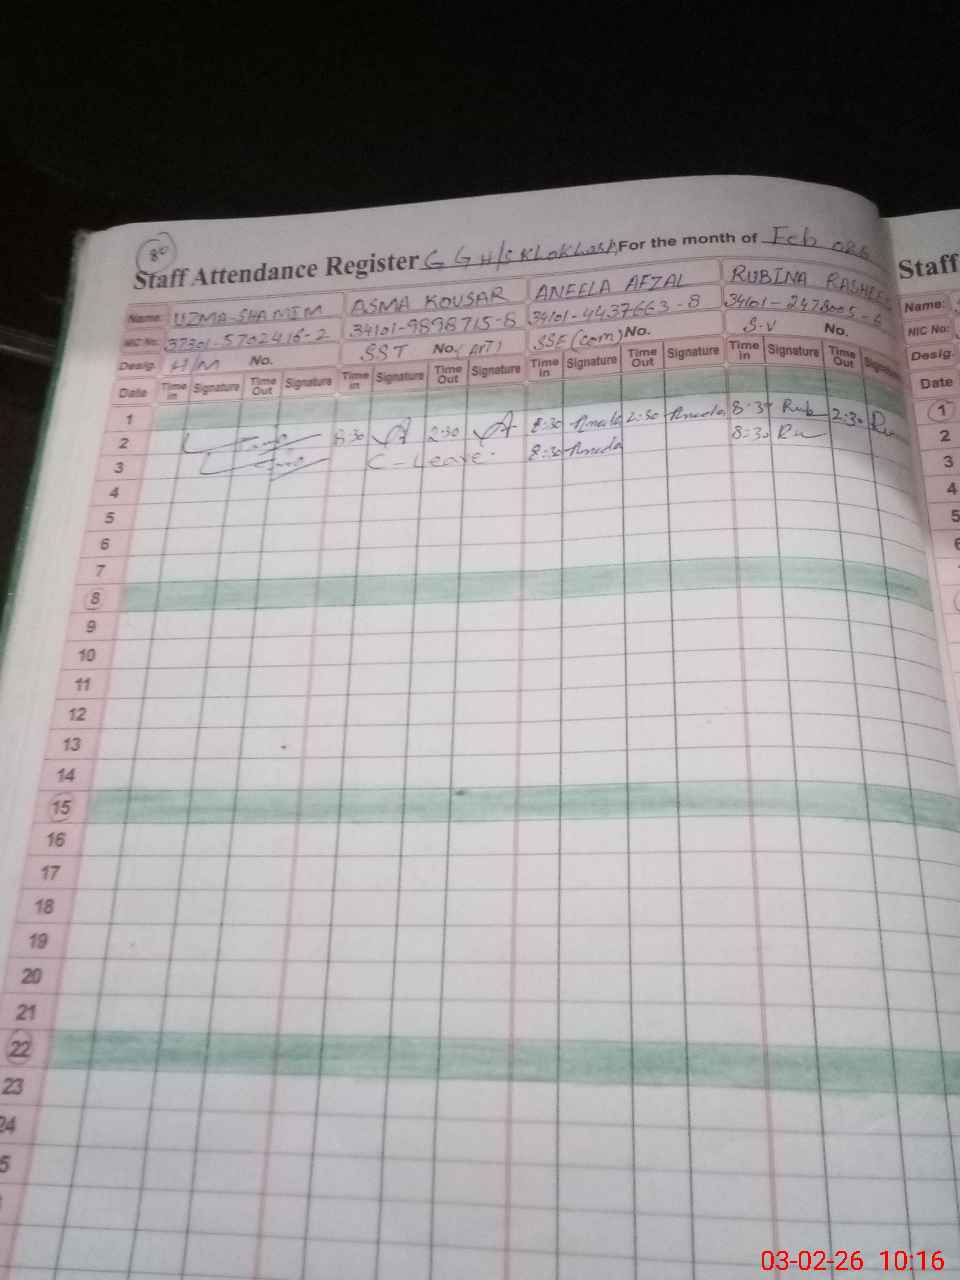 80
Staff Attendance Register G G H/S For the month of Feb
Staff
Name: UZMA SHAMIM ASMA KOUSAR ANEELA AFZAL RUBINA RASHEE
Name:
NIC No: 37301-5702416-2 34101-9898715-8 34101-4437663-8 34101-2478005-6
NIC No:
Desig. H/M No. SST No. (ArT) SSE (Com) No. S.V No.
Desig.
Date Time in Signature Time Out Signature Time in Signature Time Out Signature Time in Signature Time Out Signature Time in Signature Time Out Signature
Date
1
1
2 8:30 2:30 8:30 Aneela 2:30 Aneela 8:30 Rub 2:30 Ru
2
3 C-Leave. 8:30 Aneela 8:30 Ru
3
4
4
5
5
6
6
7
8
9
10
11
12
13
14
15
16
17
18
19
20
21
22
23
24
5
03-02-26 10:16